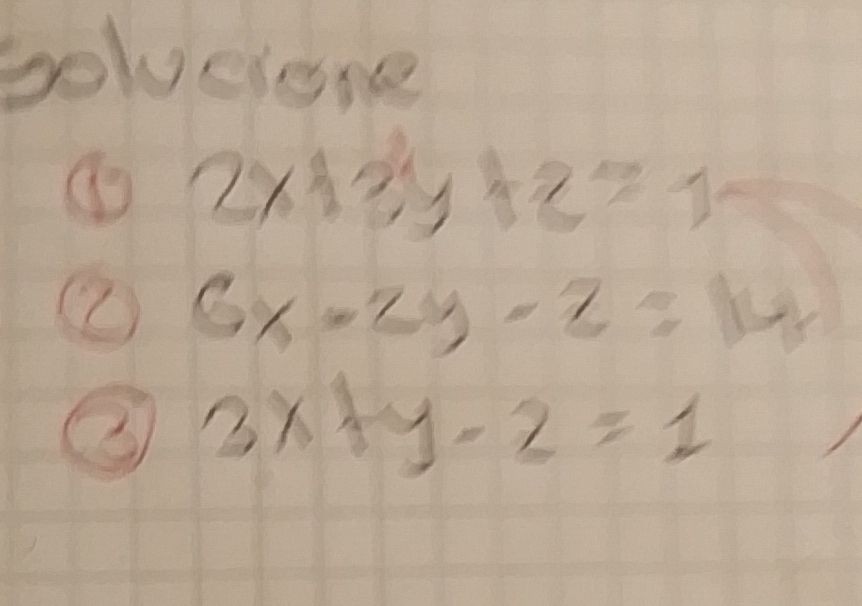 Solucione
① 2x+3y+z=1
② 6x-2y-z=14
③ 3x+y-z=1